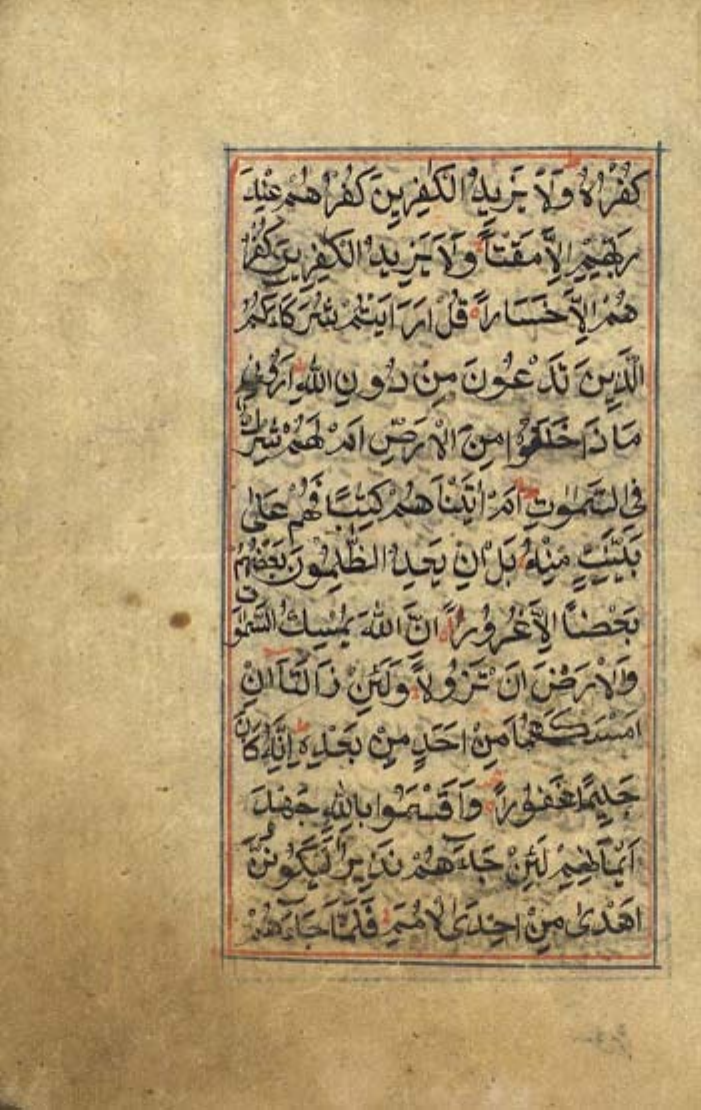 كُفْرُهٗ وَلَا يَزِيدُ الْكٰفِرِينَ كُفْرُهُمْ عِنْدَ
رَبِّهِمْ اِلَّا مَقْتًا وَلَا يَزِيدُ الْكٰفِرِينَ كُفْرُ
هُمْ اِلَّا خَسَارًا قُلْ اَرَاَيْتُمْ شُرَكَاءَكُمُ
الَّذِينَ تَدْعُونَ مِنْ دُونِ اللّٰهِ اَرُونِي
مَاذَا خَلَقُوا مِنَ الْاَرْضِ اَمْ لَهُمْ شِرْكٌ
فِي السَّمٰوٰتِ اَمْ اٰتَيْنَاهُمْ كِتٰبًا فَهُمْ عَلٰى
بَيِّنَتٍ مِنْهُ بَلْ اِنْ يَعِدُ الظّٰلِمُونَ بَعْضُهُمْ
بَعْضًا اِلَّا غُرُورًا اِنَّ اللّٰهَ يُمْسِكُ السَّمٰوٰتِ
وَالْاَرْضَ اَنْ تَزُولَا وَلَئِنْ زَالَتَا اِنْ
اَمْسَكَهُمَا مِنْ اَحَدٍ مِنْ بَعْدِهٖ اِنَّهُ كَانَ
حَلِيمًا غَفُورًا وَاَقْسَمُوا بِاللّٰهِ جَهْدَ
اَيْمَانِهِمْ لَئِنْ جَاءَهُمْ نَذِيرٌ لَيَكُونُنَّ
اَهْدٰى مِنْ اِحْدَى الْاُمَمِ فَلَمَّا جَاءَهُمْ